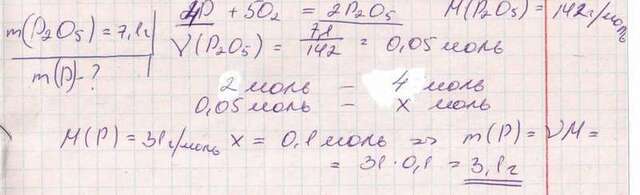 m(P₂O₅) = 7,1г
m(P) - ?
4P + 5O₂ = 2P₂O₅ M(P₂O₅) = 142г/моль
ν(P₂O₅) = 7,1/142 = 0,05 моль
2 моль – 4 моль
0,05 моль – x моль
M(P) = 31г/моль x = 0,1 моль => m(P) = νM =
= 31·0,1 = 3,1г